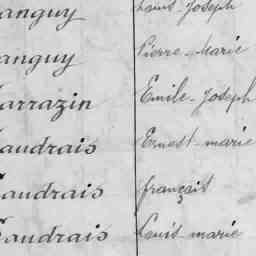 anguy Louis Joseph
anguy Pierre-Marie
arrazin Emile-Joseph
audrais Ernest-marie
audrais français
audrais Louis-marie